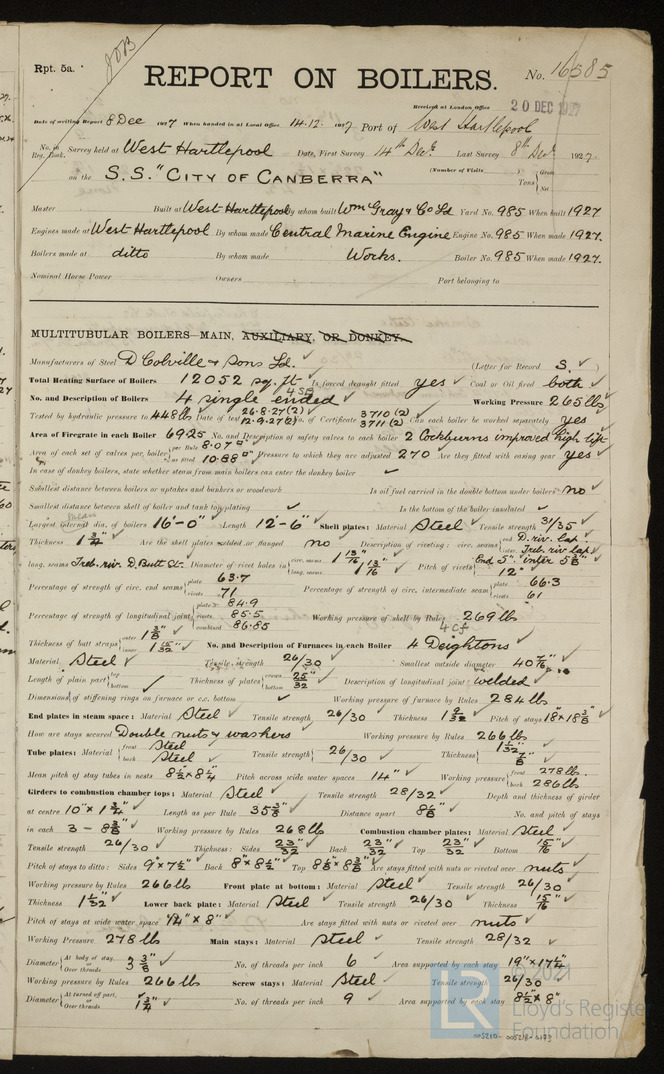 Rpt. 5a.
REPORT ON BOILERS.
No. 16585
Received at London Office
20 DEC 1927
Date of writing Report 8 Dec 1927 When handed in at Local Office 14.12.1927 Port of West Hartlepool
No. in Reg. Book. Survey held at West Hartlepool Date, First Survey 14th Last Survey 8th 1927
on the S.S. "CITY OF CANBERRA" (Number of Visits Tons Gross Net
Master Built at West Hartlepool By whom built Wm Gray & Co Ld Yard No. 985 When built 1927
Engines made at West Hartlepool By whom made Central Marine Engine Engine No. 985 When made 1927.
Boilers made at ditto By whom made Works. Boiler No. 985 When made 1927.
Nominal Horse Power Owners Port belonging to
MULTITUBULAR BOILERS—MAIN, AUXILIARY, OR DONKEY.
Manufacturers of Steel D Colville & Sons Ld. ✓ (Letter for Record S. ✓)
Total Heating Surface of Boilers 12052 sq. ft Is forced draught fitted yes ✓ Coal or Oil fired both ✓
No. and Description of Boilers 4 single ended ✓ 4 SB Working Pressure 265 lbs
Tested by hydraulic pressure to 448 lbs Date of test 26.8.27 (2) 12.9.27 (2) No. of Certificate 3710 (2) 3711 (2) Can each boiler be worked separately yes ✓
Area of Firegrate in each Boiler 69.25 No. and Description of safety valves to each boiler 2 Cockburns improved high lift
Area of each set of valves per boiler per Rule 8.07 as fitted 10.88 Pressure to which they are adjusted 270 Are they fitted with easing gear yes ✓
In case of donkey boilers, state whether steam from main boilers can enter the donkey boiler ✓
Smallest distance between boilers or uptakes and bunkers or woodwork Is oil fuel carried in the double bottom under boilers no ✓
Smallest distance between shell of boiler and tank top plating ✓ Is the bottom of the boiler insulated ✓
Largest internal dia. of boilers 16'-0" ✓ Length 12'-6" ✓ Shell plates: Material Steel ✓ Tensile strength 31/35
Thickness 1 3/4" ✓ Are the shell plates welded or flanged no Description of riveting: circ. seams end D. riv. lap inter. Treb. riv lap
long. seams Treb. riv. D. Butt St. Diameter of rivet holes in circ. seams 1 13/16" long. seams 1 13/16" Pitch of rivets End 5" inter 5 12"
Percentage of strength of circ. end seams plate 63.7 rivets 71 Percentage of strength of circ. intermediate seam plate 66.3 rivets 61
Percentage of strength of longitudinal joint plate 84.9 rivets 85.5 combined 86.85 Working pressure of shell by Rules 269 lb
Thickness of butt straps outer 1 3/8" inner 1 15/32" No. and Description of Furnaces in each Boiler 4 Deightons
Material Steel ✓ Tensile strength 26/30 Smallest outside diameter 40 7/16"
Length of plain part top bottom ✓ Thickness of plates crown 25" bottom 32 Description of longitudinal joint welded ✓
Dimensions of stiffening rings on furnace or c.c. bottom ✓ Working pressure of furnace by Rules 284 lb
End plates in steam space: Material Steel ✓ Tensile strength 26/30 Thickness 1 9/32" Pitch of stays 18" x 18 3/8" ✓
How are stays secured Double nuts & washers Working pressure by Rules 266 lb
Tube plates: Material front Steel back Steel Tensile strength 26/30 Thickness 1 1/32" 7/8"
Mean pitch of stay tubes in nests 8 1/2" x 8 1/4" ✓ Pitch across wide water spaces 14" ✓ Working pressure front 278 lb. back 286 lb
Girders to combustion chamber tops: Material Steel ✓ Tensile strength 28/32 Depth and thickness of girder
at centre 10" x 1 3/4" ✓ Length as per Rule 35 3/8" Distance apart 8 5/8" ✓ No. and pitch of stays
in each 3 - 8 3/8" Working pressure by Rules 268 lb Combustion chamber plates: Material Steel ✓
Tensile strength 26/30 ✓ Thickness: Sides 23/32" Back 23/32" Top 23/32" Bottom 15/16"
Pitch of stays to ditto: Sides 9" x 7 1/2" ✓ Back 8" x 8 1/2" ✓ Top 8 5/8" x 8 3/8" ✓ Are stays fitted with nuts or riveted over nuts ✓
Working pressure by Rules 266 lb Front plate at bottom: Material Steel ✓ Tensile strength 26/30 ✓
Thickness 1 1/32" ✓ Lower back plate: Material Steel ✓ Tensile strength 26/30 ✓ Thickness 15/16"
Pitch of stays at wide water space 14" x 8" ✓ Are stays fitted with nuts or riveted over nuts ✓
Working Pressure 278 lb Main stays: Material Steel ✓ Tensile strength 28/32 ✓
Diameter At body of stay, or Over threads 3 3/8" No. of threads per inch 6 ✓ Area supported by each stay 19" x 17 1/4"
Working pressure by Rules 266 lb Screw stays: Material Steel ✓ Tensile strength 26/30
Diameter At turned off part, or Over threads 1 3/4" ✓ No. of threads per inch 9 ✓ Area supported by each stay 8 1/2" x 8"
© 2021
LR
Lloyd's Register
Foundation